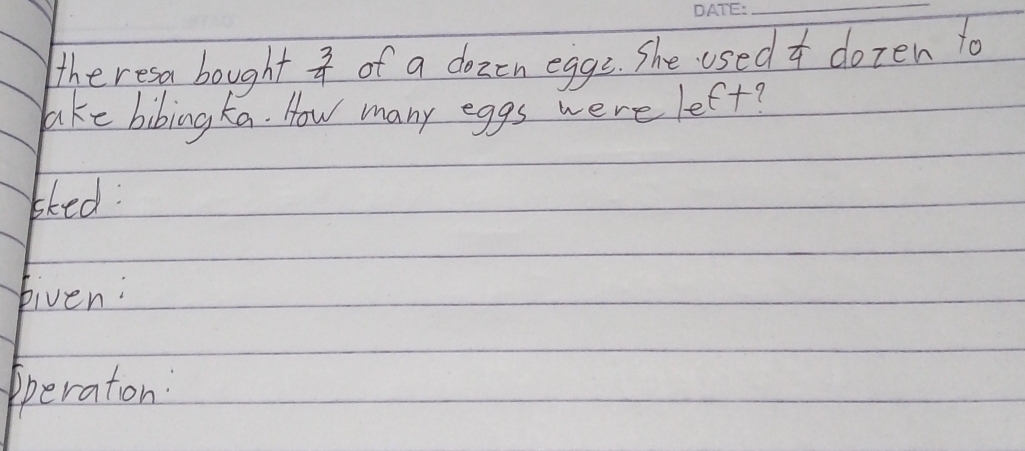 DATE:
theresa bought 3/4 of a dozen eggs. She used 1/4 dozen to
ake bibingka. How many eggs were left?
sked:
Given:
Operation: